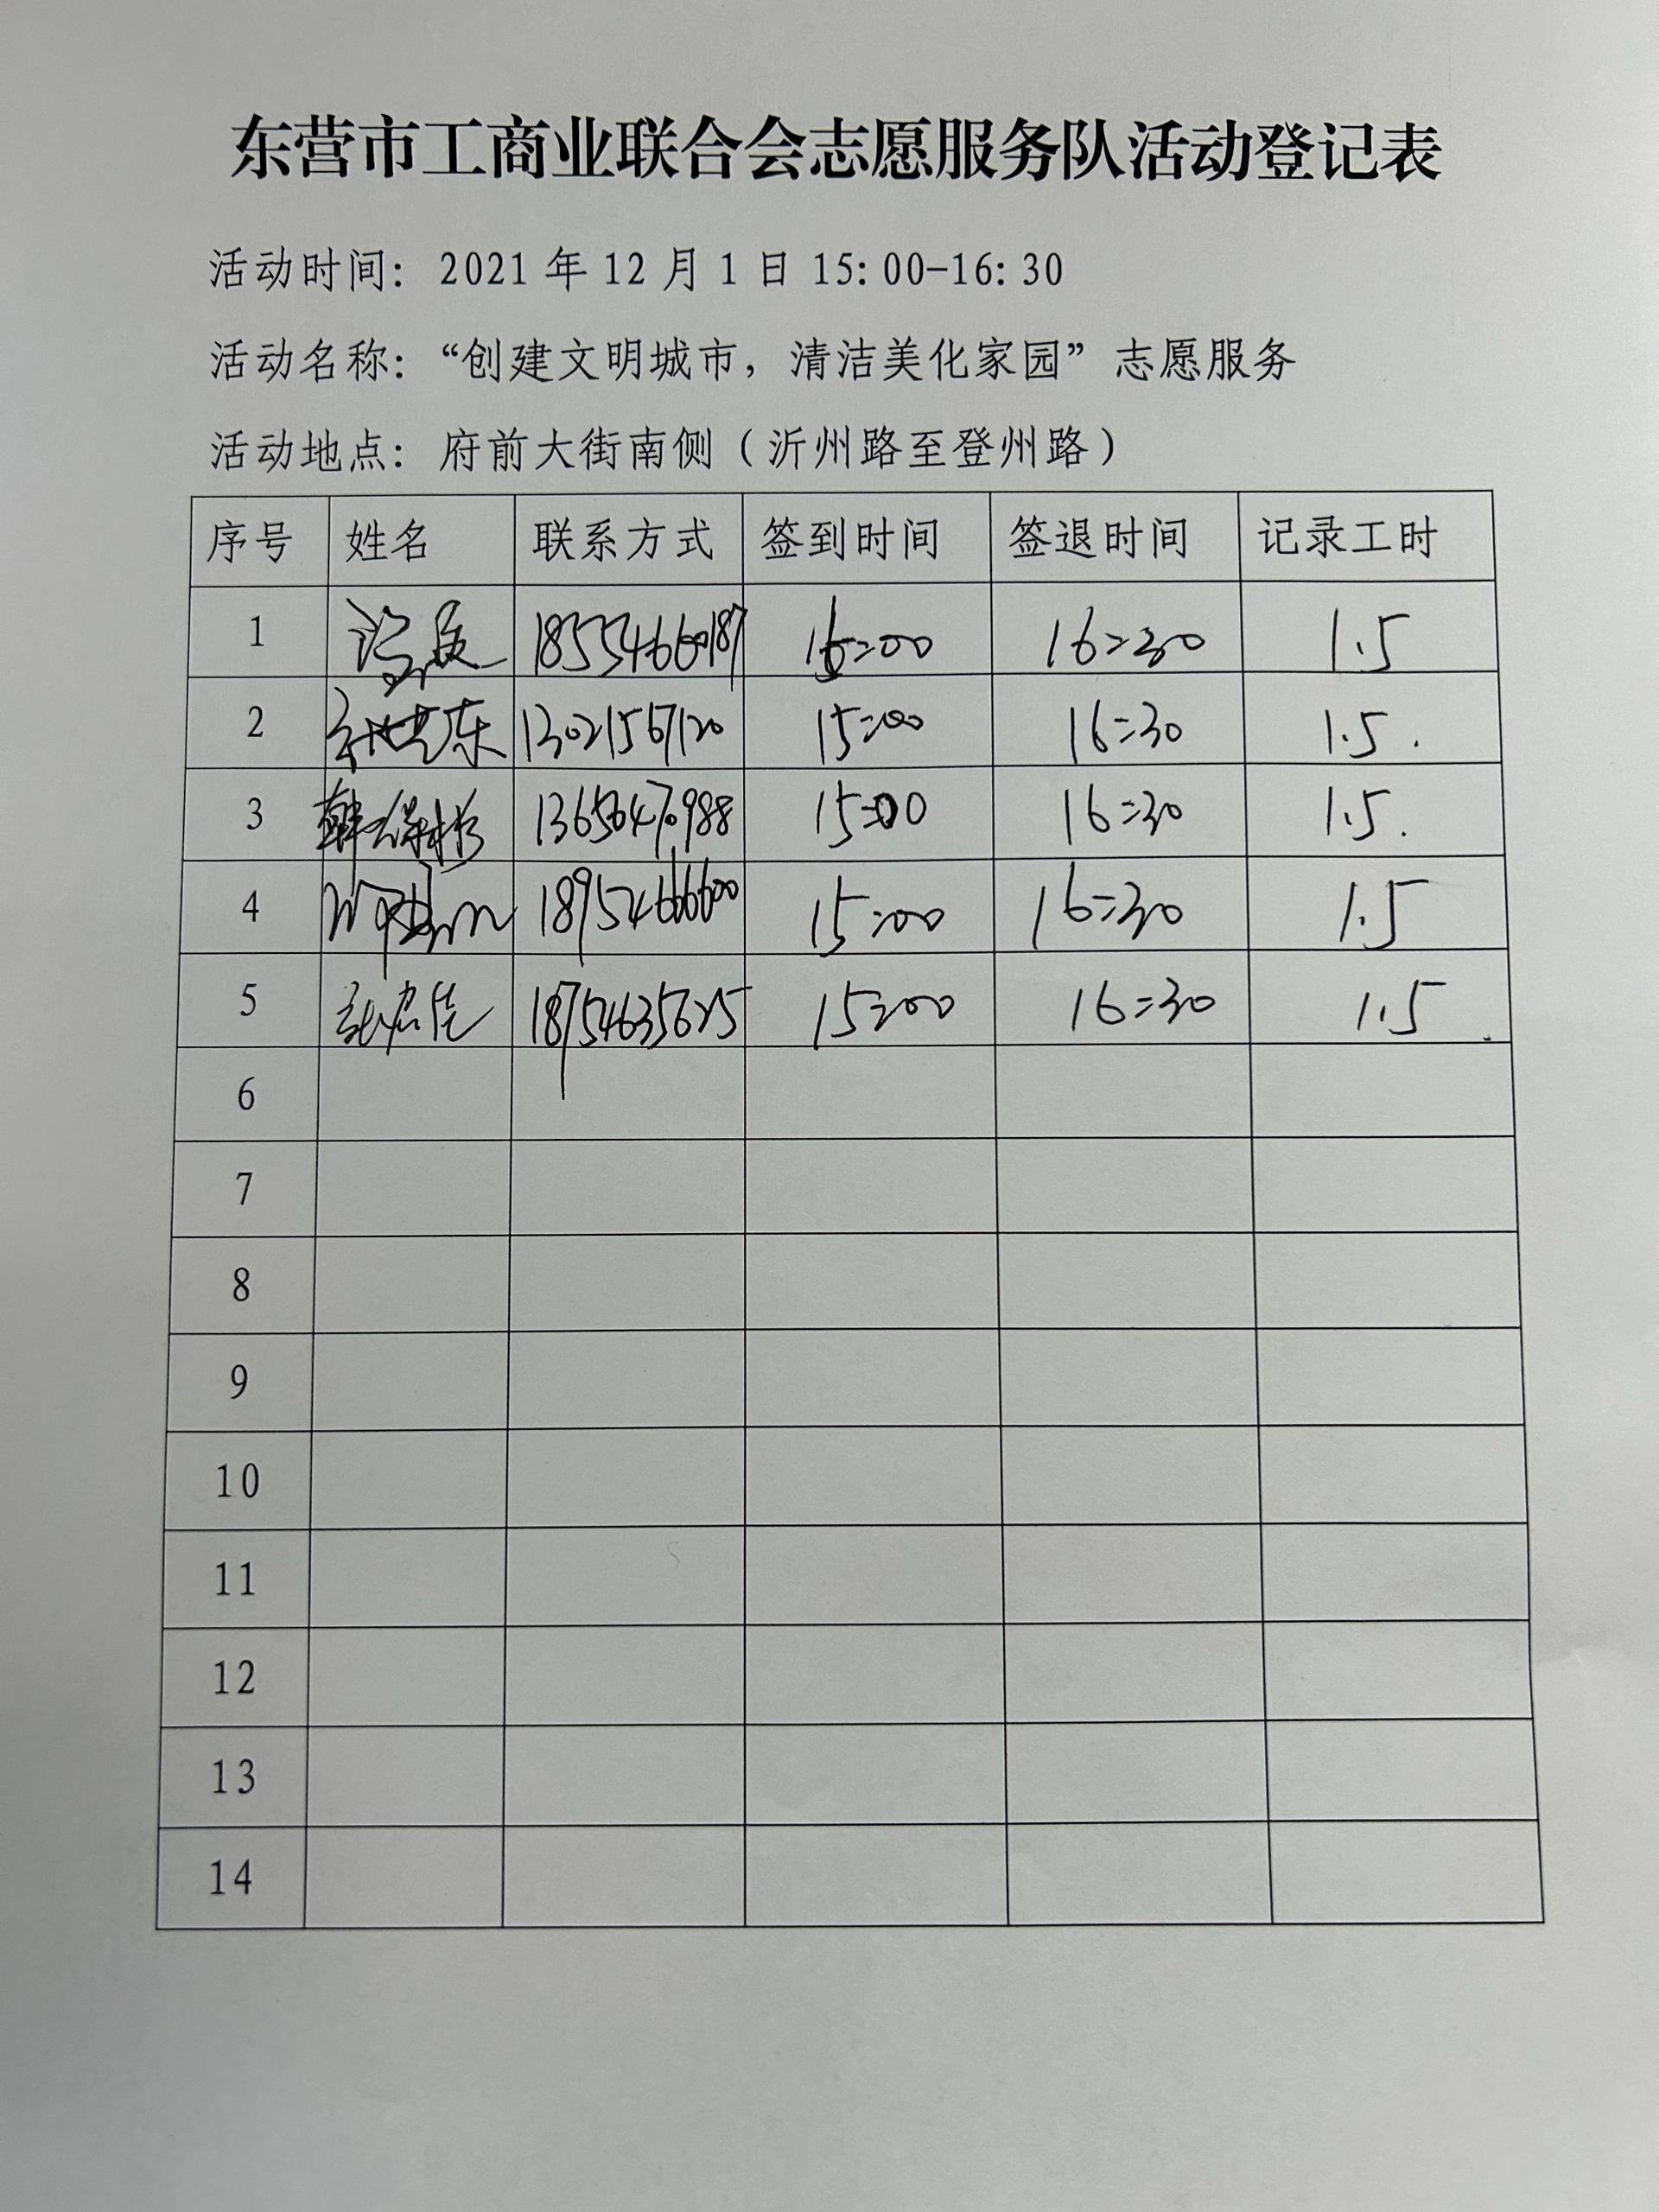 东营市工商业联合会志愿服务队活动登记表
活动时间：2021年12月1日15:00-16:30
活动名称：“创建文明城市，清洁美化家园”志愿服务
活动地点：府前大街南侧（沂州路至登州路）
序号 姓名 联系方式 签到时间 签退时间 记录工时
1 18554660187 16:30 1.5
2 13021567120 15:00 16:30 1.5
3 15:00 16:30 1.5
4 18952466600 15:00 16:30 1.5
5 18754635625 15:00 16:30 1.5
6
7
8
9
10
11
12
13
14